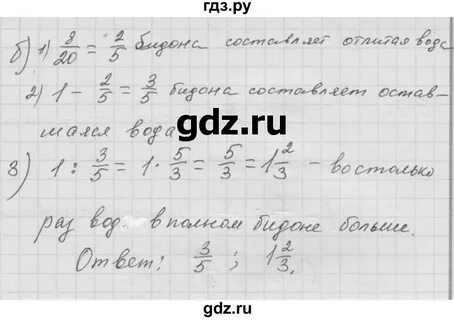 гдз.ру
б) 1) 8/20 = 2/5 бидона составляет отлитая вода
2) 1 - 2/5 = 3/5 бидона составляет остав-
шаяся вода
gdz.ru
3) 1 : 3/5 = 1 · 5/3 = 5/3 = 1 2/3 - во столько
раз вод. в полном бидоне больше.
Ответ: 3/5 ; 1 2/3.
gdz.ru